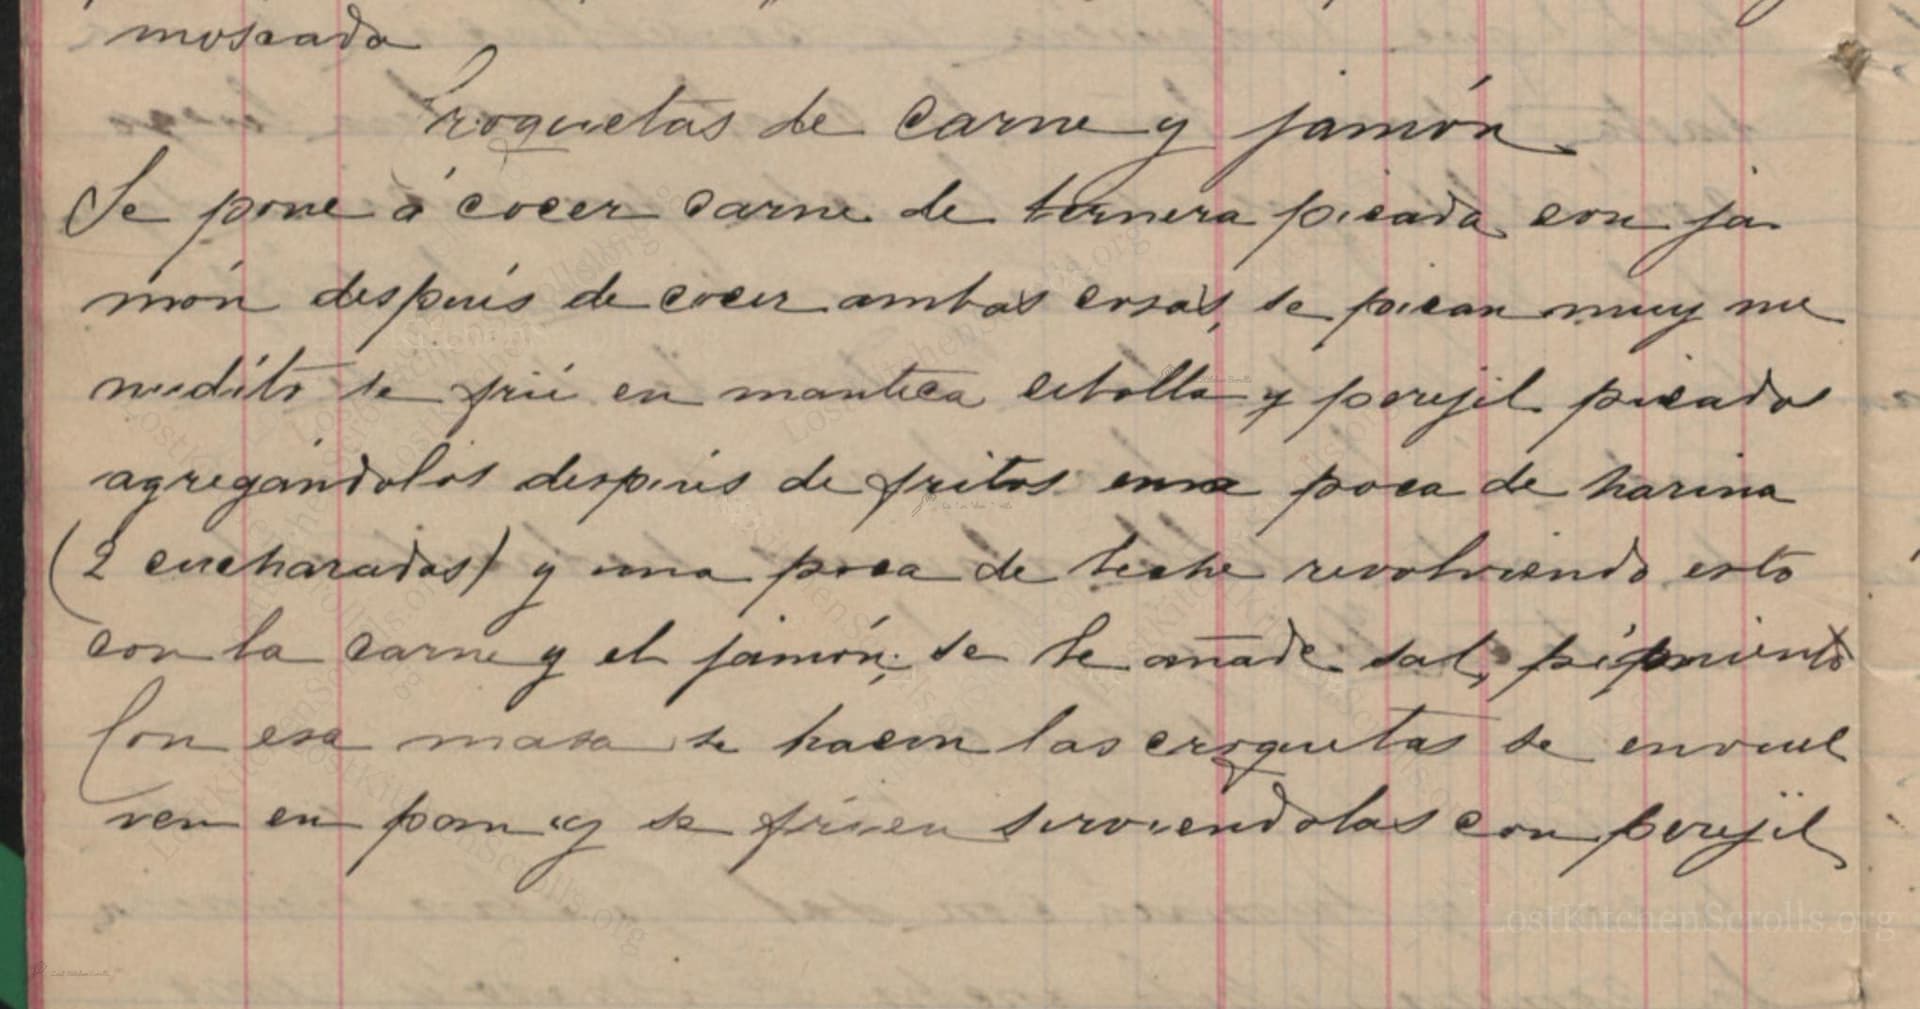 moscada
Croquetas de carne y jamón
Se pone á cocer carne de ternera picada con ja
món después de cocer ambas cosas, se pican muy me
nudito se frie en manteca cebolla y perejil picados
agregándolos después de fritos una poca de harina
(2 cucharadas) y una poca de leche revolviendo esto
con la carne y el jamón; se le añade sal,
Con esa masa se hacen las croquetas se envuel
ven en pan y se frien sirviendolas con perejil
LostKitchenScrolls.org